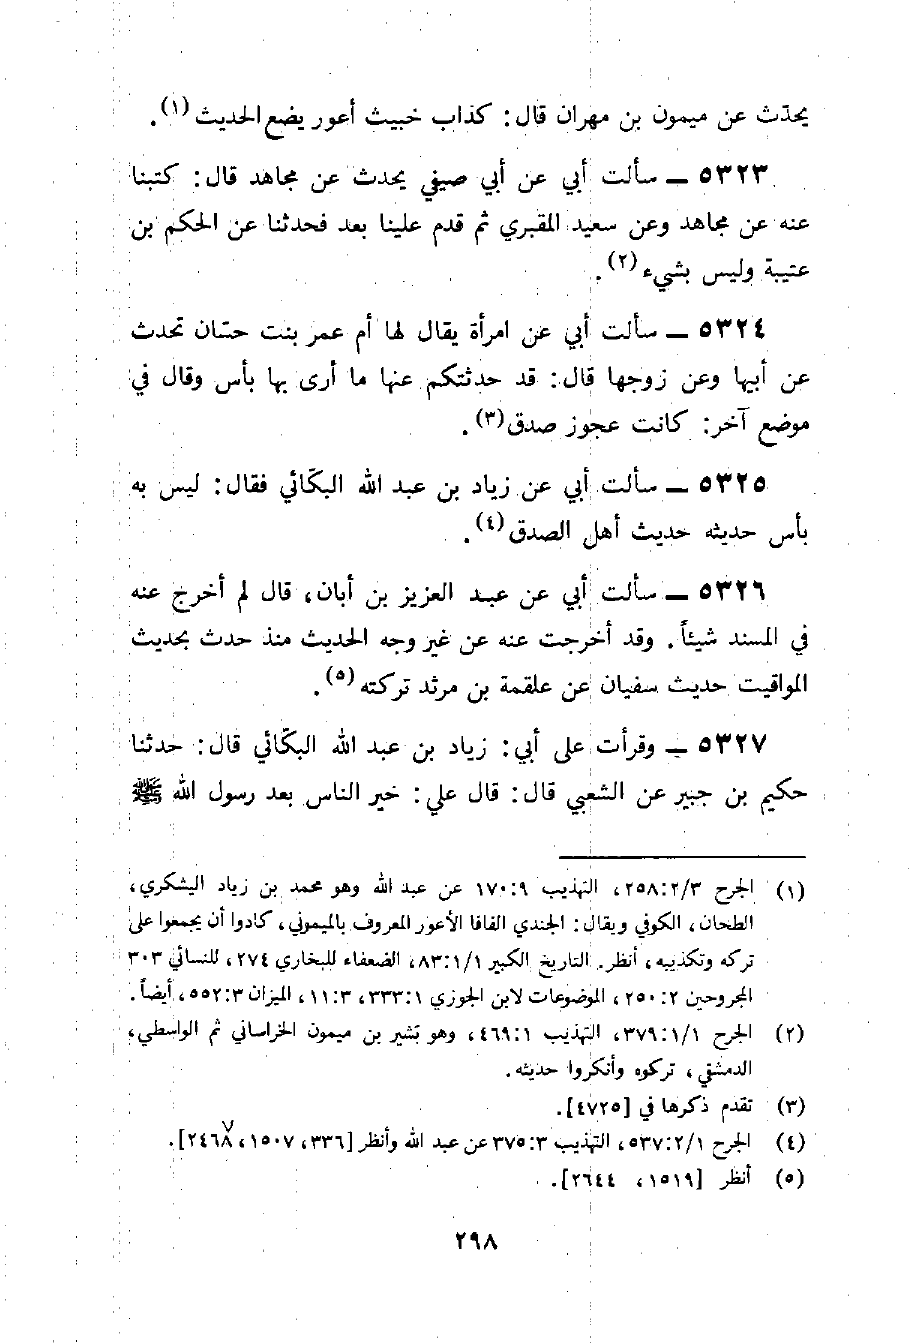 يحدّث عن ميمون بن مهران قال: كذاب خبيث أعور يضع الحديث (١).
٥٣٢٣ ـ سألت أبي عن أبي صيفي يحدث عن مجاهد قال: كتبنا
عنه عن مجاهد وعن سعيد المقبري ثم قدم علينا بعد فحدثنا عن الحكم بن
عتيبة وليس بشيء (٢).
٥٣٢٤ ـ سألت أبي عن امرأة يقال لها أم عمر بنت حسّان تحدث
عن أبيها وعن زوجها قال: قد حدثتكم عنها ما أرى بها بأس وقال في
موضع آخر: كانت عجوز صدق (٣).
٥٣٢٥ ـ سألت أبي عن زياد بن عبد الله البكّائي فقال: ليس به
بأس حديثه حديث أهل الصدق (٤).
٥٣٢٦ ـ سألت أبي عن عبد العزيز بن أبان، قال لم أخرج عنه
في المسند شيئاً. وقد أخرجت عنه عن غير وجه الحديث منذ حدث بحديث
المواقيت حديث سفيان عن علقمة بن مرثد تركته (٥).
٥٣٢٧ ـ وقرأت على أبي: زياد بن عبد الله البكّائي قال: حدثنا
حكيم بن جبير عن الشعبي قال: قال علي: خير الناس بعد رسول الله ﷺ
(١) الجرح ٢٥٨:٢/٣، التهذيب ١٧٠:٩ عن عبد الله وهو محمد بن زياد اليشكري،
الطحان، الكوفي ويقال: الجندي الفافا الأعور المعروف بالميموني، كادوا أن يجمعوا على
تركه وتكذيبه، أنظر. التاريخ الكبير ٨٣:١/١، الضعفاء للبخاري ٢٧٤، للنسائي ٣٠٣
المجروحين ٢٥٠:٢، الموضوعات لابن الجوزي ٣٣٣:١، ١١:٣، الميزان ٥٥٢:٣، أيضاً.
(٢) الجرح ٣٧٩:١/١، التهذيب ٤٦٩:١، وهو بشير بن ميمون الخراساني ثم الواسطي،
الدمشقي، تركوه وأنكروا حديثه.
(٣) تقدم ذكرها في [٤٧٢٥].
(٤) الجرح ٥٣٧:٢/١، التهذيب ٣٧٥:٣ عن عبد الله وأنظر [٣٣٦، ١٥٠٧، ٢٤٦٨].
(٥) أنظر [١٥١٩، ٢٦٤٤].
٢٩٨